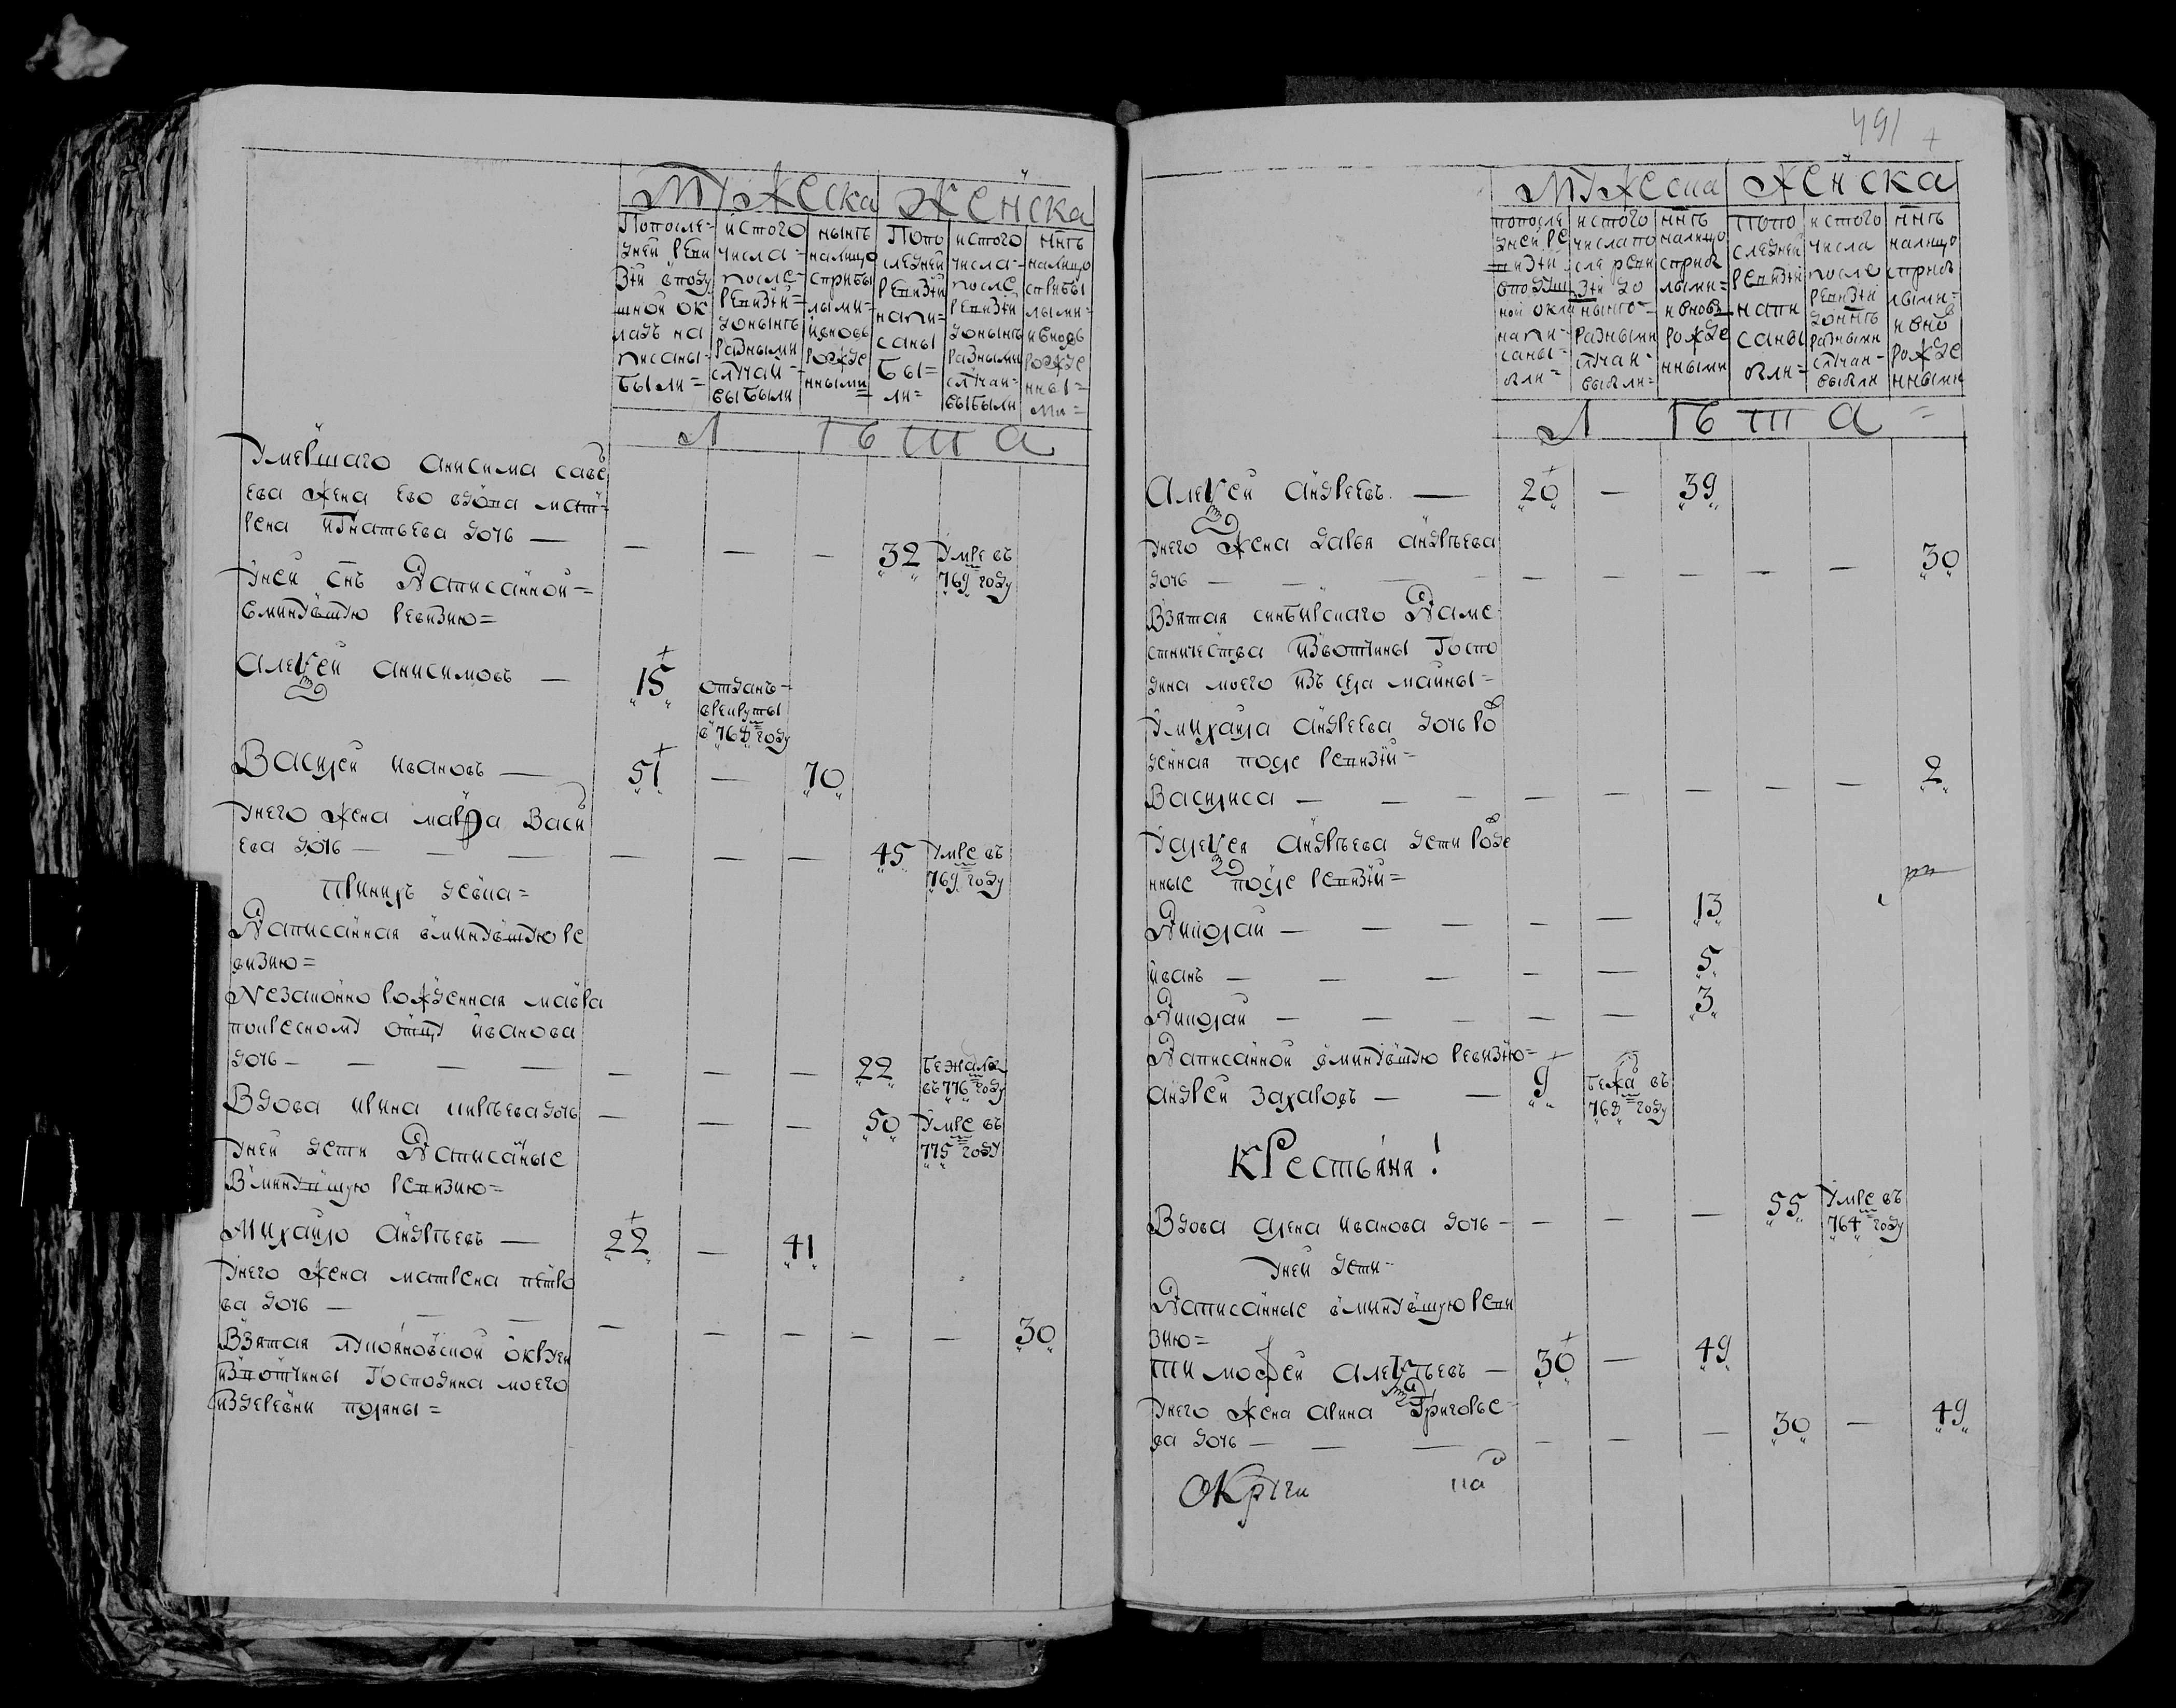 Мужеска Женска
По последней ревизии в подушной окладъ написаны были=
ис того числа после ревизии= до ныне разными случаи выбыли
ныне на лицо с прибылыми и вновь рожденными
По последней ревизии написаны были=
ис того числа после ревизии до ныне разными случаи выбыли
ныне на лицо с прибылыми и вновь рожденными=
Л ѣ т а
Умершаго анисима саве
ева жена ево вдова мат
рена игнатьева дочь — — — — 32 умре въ
769 году
у ней снъ Написанной=
в минувшую ревизию=
алексей анисимовъ — 15 отданъ
в рекруты
в 768 году
Василей ивановъ — 51 — 70
у него жена мавра Васи
ева дочь — — — — 45 умре въ
769 году
Написанная в минувшую ре
визию=
Незаконно рожденная мавра
по кресному отцу иванова
дочь — — — — 22 бежала
въ 776 году
Вдова ирина кирѣева дочь — — — 50 умре въ
775 году
у ней дети Написаные
В минувшую ревизию=
Михайло андрѣевъ — 22 — 41
у него жена матрена петро
ва дочь — — — — — — 30
Взятая лукояновской округи
из вотчины Господина моего
из деревни поляны=
491
Мужеска Женска
по последней ревизии в подушной окладъ написаны были=
ис того числа после ревизии до ныне разными случаи выбыли=
ныне на лицо с прибылыми= и вновь рожденными
По последней ревизии написаны были=
ис того числа после ревизии до ныне разными случаи выбыли
ныне на лицо с прибылыми= и вновь рожденными
Л ѣ т а =
Алексей андреевъ. — 20 — 39
у него жена дарья андрѣева
дочь — — — — — — 30
Взятая синбирскаго Наме
стничества из вотчины Госпо
дина моего изъ села майны=
у михаила андреева дочь ро
денная после ревизии=
Василиса — — — — — — 2
у алексея андрѣева дети рожде
нные после ревизии=
Николай — — — 13
иванъ — — — 5
Николай — — — 3
Написанной в минувшую ревизию=
андрей захаровъ — 9 бежа въ
768 году
Крестьяня!
Вдова алена иванова дочь — — — — 55 умре въ
764 году
у ней дети
Написанные в минувшую реви
зию=
тимофей алексѣевъ — 30 — 49
у него жена арина Григорье
ва дочь — — — — 30 — 49
округи